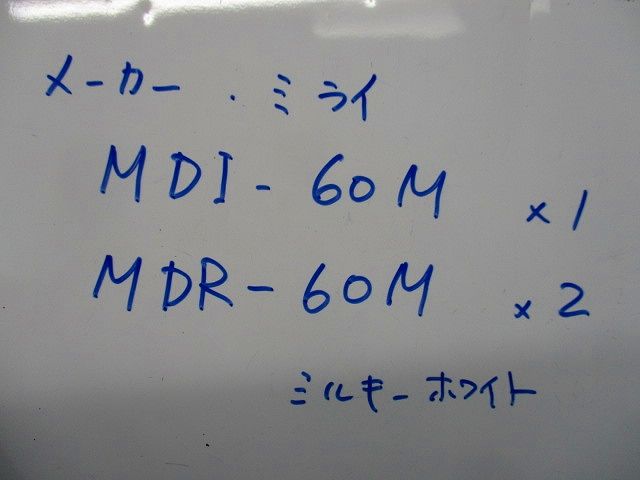 メーカー ・ミライ
MDI-60M ×1
MDR-60M ×2
ミルキーホワイト